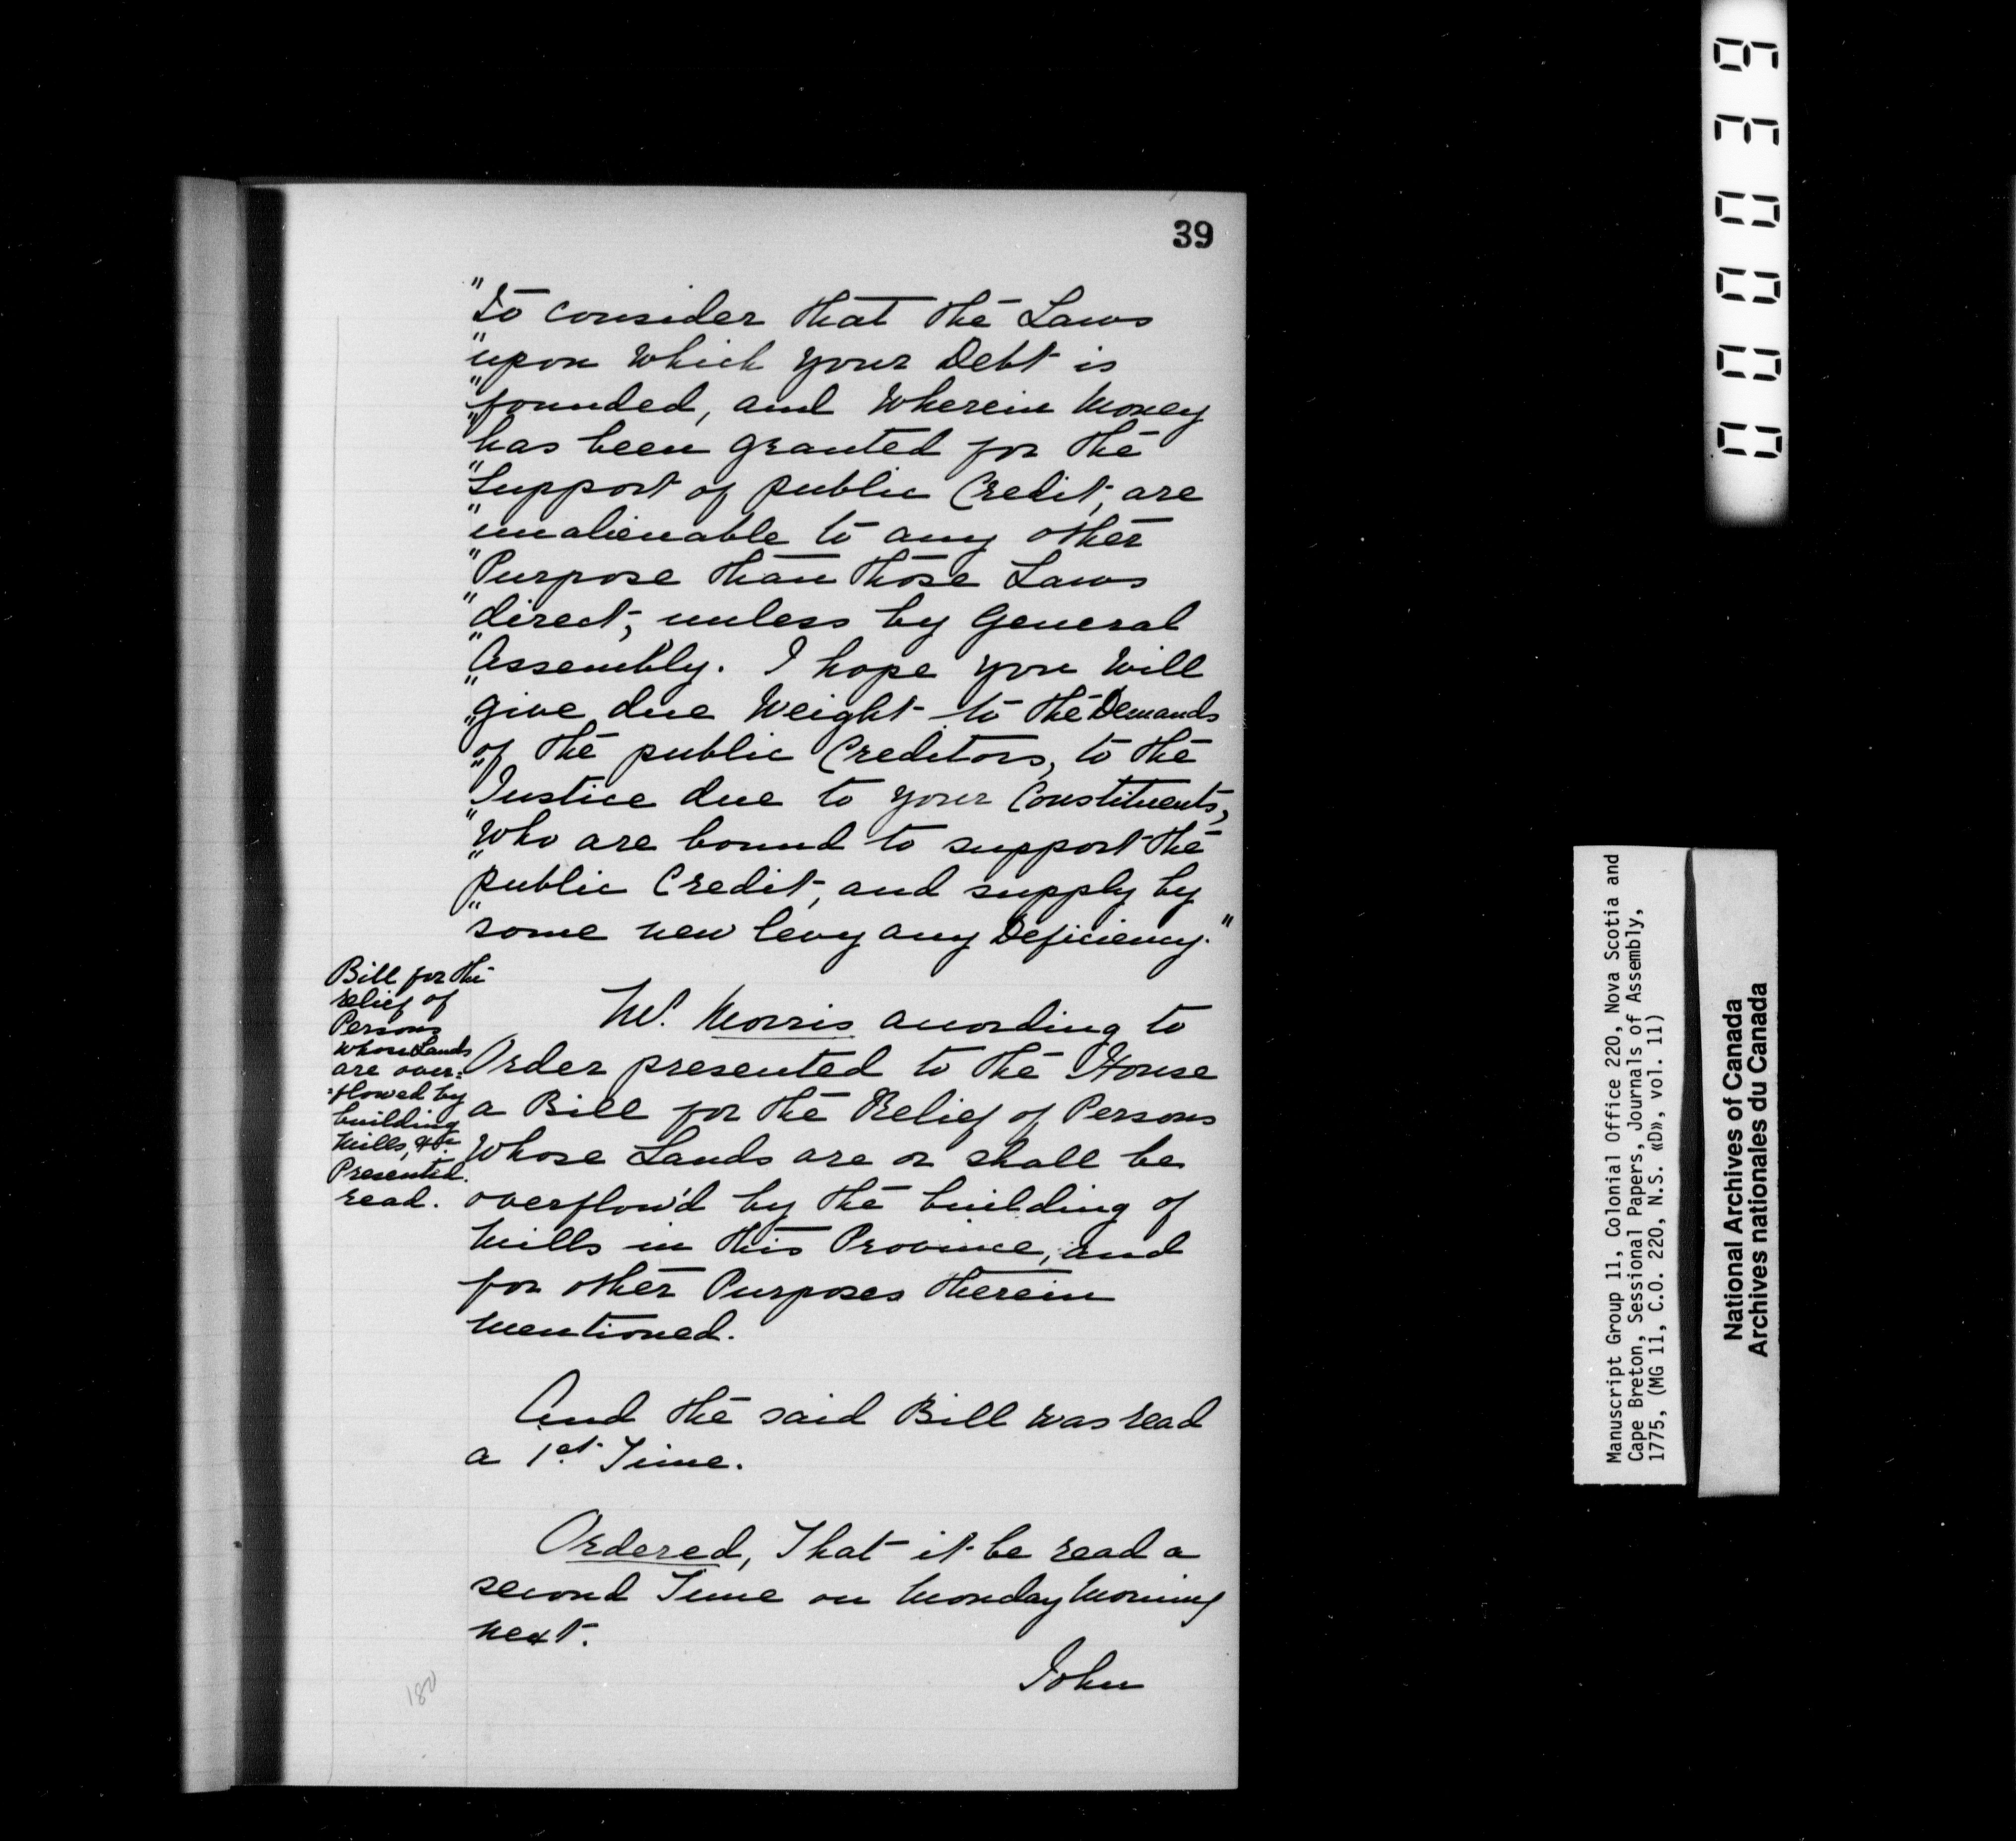 39
"to consider that the Laws
"upon which your Debt is
"founded, and wherein Money
"has been granted for the
"Support of public Credit, are
"unalienable to any other
"Purpose than those Laws
"direct, unless by General
"Assembly. I hope you will
"give due Weight to the Demands
"of the public Creditors, to the
"Justice due to your Constituents,
"who are bound to support the
"public Credit, and supply by
"some new levy any Deficiency."
Bill for the
relief of
Persons
whose Lands
are over=
=flowed by
building
Mills, &c.
Presented.
read.
Mr. Morris according to
Order presented to the House
a Bill for the Relief of Persons
whose Lands are or shall be
overflow'd by the building of
Mills in this Province, and
for other Purposes therein
mentioned.
And the said Bill was read
a 1st. Time.
Ordered, That it be read a
second Time on Monday Morning
next.
John
180
000039
Manuscript Group 11, Colonial Office 220, Nova Scotia and
Cape Breton, Sessional Papers, Journals of Assembly,
1775, (MG 11, C.O. 220, N.S. «D», vol. 11)
National Archives of Canada
Archives nationales du Canada